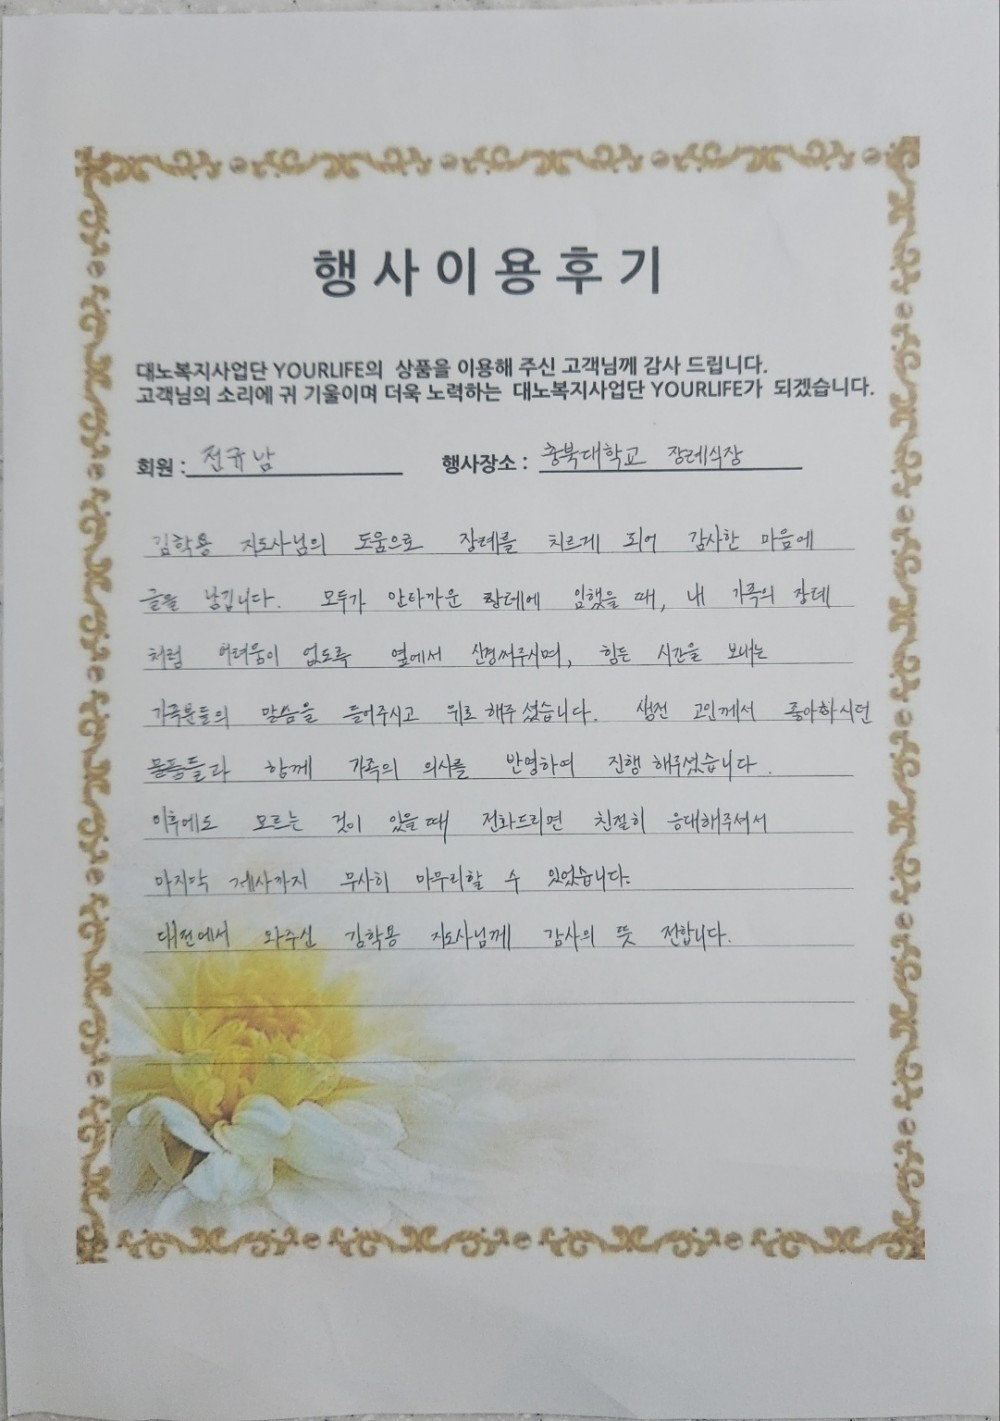 행사이용후기
대노복지사업단 YOURLIFE의 상품을 이용해 주신 고객님께 감사 드립니다.
고객님의 소리에 귀 기울이며 더욱 노력하는 대노복지사업단 YOURLIFE가 되겠습니다.
회원 : 전규남 행사장소 : 충북대학교 장례식장
김학용 지도사님의 도움으로 장례를 치르게 되어 감사한 마음에
글을 남깁니다. 모두가 안타까운 장례에 임했을 때, 내 가족의 장례
처럼 어려움이 없도록 옆에서 신경써주시며, 힘든 시간을 보내는
가족분들의 말씀을 들어주시고 위로 해주셨습니다. 생전 고인께서 좋아하시던
물품들과 함께 가족의 의사를 반영하여 진행 해주셨습니다.
이후에도 모르는 것이 있을 때 전화드리면 친절히 응대해주셔서
마지막 제사까지 무사히 마무리할 수 있었습니다.
대전에서 와주신 김학용 지도사님께 감사의 뜻 전합니다.